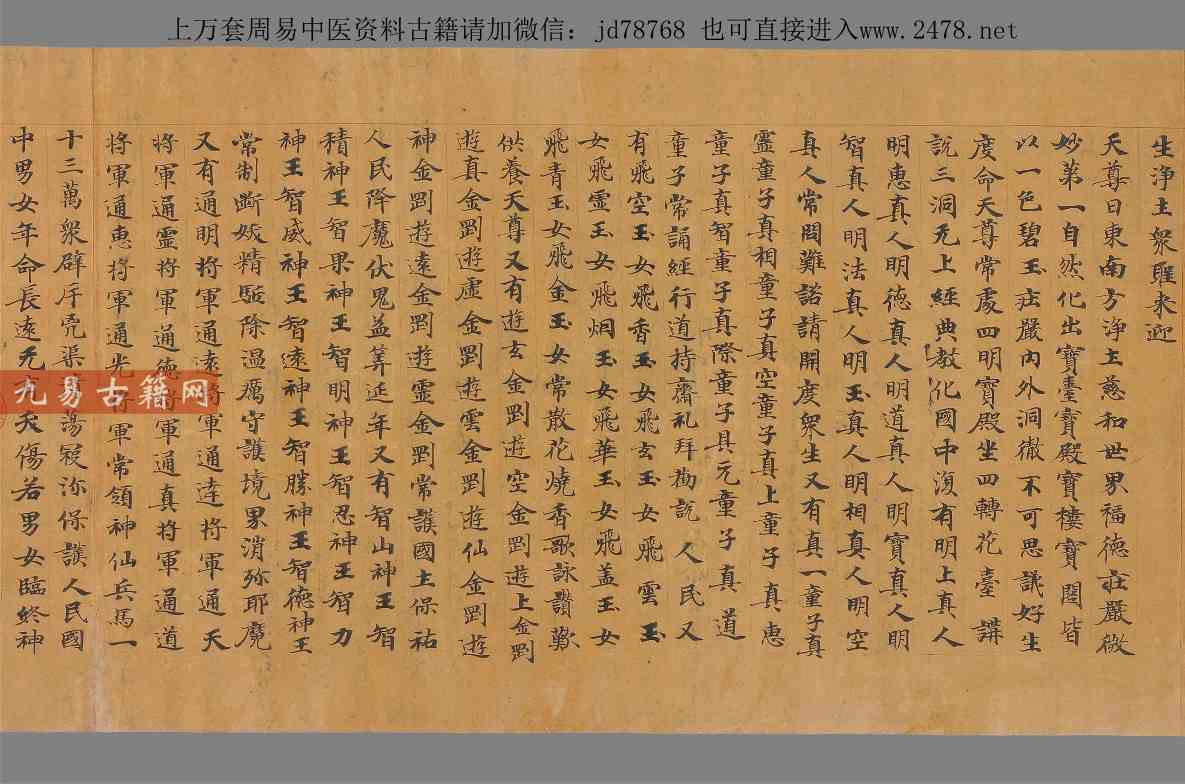 上万套周易中医资料古籍请加微信：jd78768 也可直接进入www.2478.net
生淨土衆聖来迎
天尊曰東南方淨土慈和世界福徳莊嚴微
妙苐一自然化出寶臺寶殿寶樓寶閣皆
以一色碧玉莊嚴內外洞徹不可思議好生
度命天尊常處四明寶殿坐四轉花臺講
說三洞无上經典教化國中復有明上真人
明惠真人明徳真人明道真人明寶真人明
智真人明法真人明玉真人明相真人明空
真人常問難諮請開度衆生又有真一童子真
靈童子真相童子真空童子真上童子真惠
童子真智童子真際童子真元童子真道
童子常誦經行道持齋礼拜勸説人民又
有飛空玉女飛香玉女飛玄玉女飛雲玉
女飛霊玉女飛烟玉女飛華玉女飛盖玉女
飛青玉女飛金玉女常散花燒香歌詠讚歎
供養天尊又有遊玄金罡遊空金罡遊上金罡
遊真金罡遊虛金罡遊雲金罡遊仙金罡遊
神金罡遊遠金罡遊霊金罡常護國土保祐
人民降魔伏鬼益筭延年又有智山神王智
積神王智果神王智明神王智忍神王智力
神王智威神王智遠神王智勝神王智徳神王
常制斷妖精駈除温厲守護境界消弥耶魔
又有通明将軍通遠将軍通逹将軍通天
将軍通靈将軍通徳将軍通真将軍通道
将軍通惠将軍通光将軍常領神仙兵馬一
十三萬衆辟斥㐫渠蕩冦弥保護人民國
中男女年命長遠无夭傷若男女臨終神
九易古籍网